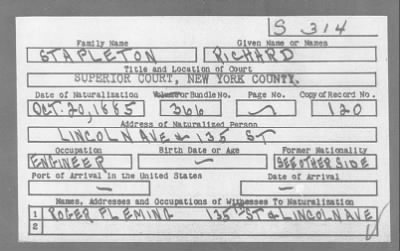 S 314
Family Name Given Name or Names
STAPLETON RICHARD
Title and Location of Court
SUPERIOR COURT, NEW YORK COUNTY.
Date of Naturalization Volume or Bundle No. Page No. Copy of Record No.
OCT. 20, 1885 366 — 120
Address of Naturalized Person
LINCOLN AVE & 135 ST
Occupation Birth Date or Age Former Nationality
ENGINEER — SEE OTHER SIDE
Port of Arrival in the United States Date of Arrival
— —
Names, Addresses and Occupations of Witnesses To Naturalization
1 ROGER FLEMING 135TH ST & LINCOLN AVE
2